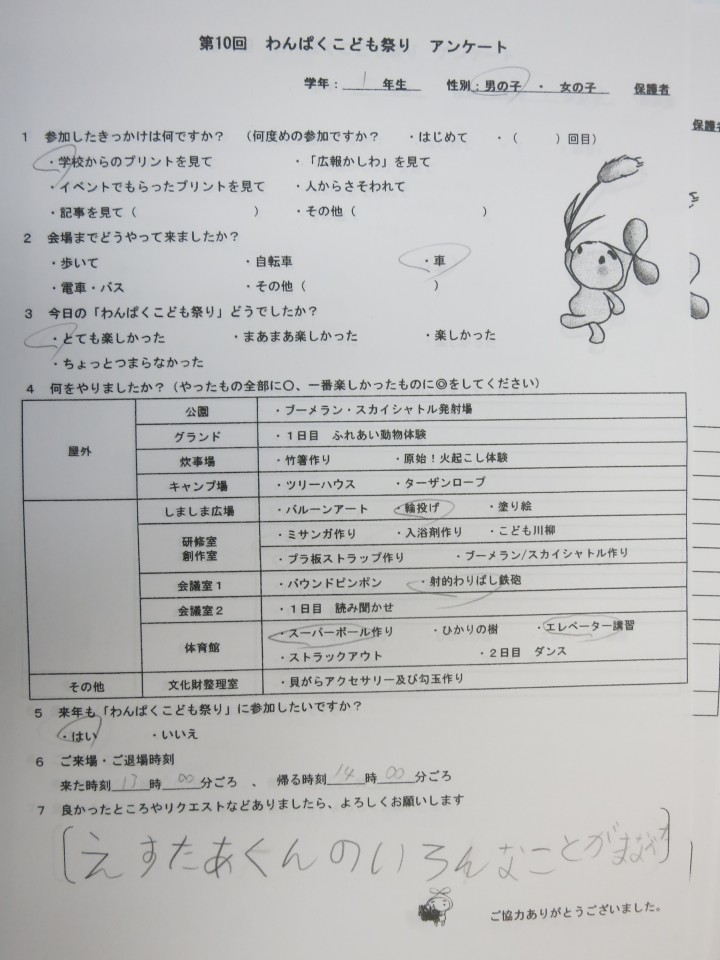 第10回　わんぱくこども祭り　アンケート
学年：　1　年生　　性別：男の子　・　女の子　　保護者
1　参加したきっかけは何ですか？　（何度めの参加ですか？　・はじめて　・（　　）回目）
・学校からのプリントを見て　・「広報かしわ」を見て
・イベントでもらったプリントを見て　・人からさそわれて
・記事を見て（　　　）　・その他（　　　）
2　会場までどうやって来ましたか？
・歩いて　・自転車　・車
・電車・バス　・その他（　　　）
3　今日の「わんぱくこども祭り」どうでしたか？
・とても楽しかった　・まあまあ楽しかった　・楽しかった
・ちょっとつまらなかった
4　何をやりましたか？（やったもの全部に〇、一番楽しかったものに◎をしてください）
屋外
公園　・ブーメラン・スカイシャトル発射場
グランド　・1日目　ふれあい動物体験
炊事場　・竹箸作り　・原始！火起こし体験
キャンプ場　・ツリーハウス　・ターザンロープ
しましま広場　・バルーンアート　・輪投げ　・塗り絵
研修室　・ミサンガ作り　・入浴剤作り　・こども川柳
創作室　・プラ板ストラップ作り　・ブーメラン/スカイシャトル作り
会議室1　・バウンドピンポン　・射的わりばし鉄砲
会議室2　・1日目　読み聞かせ
体育館　・スーパーボール作り　・ひかりの樹　・エレベーター講習
・ストラックアウト　・2日目　ダンス
その他　文化財整理室　・貝がらアクセサリー及び勾玉作り
5　来年も「わんぱくこども祭り」に参加したいですか？
・はい　・いいえ
6　ご来場・ご退場時刻
来た時刻　13　時　00　分ごろ　、　帰る時刻　14　時　00　分ごろ
7　良かったところやリクエストなどありましたら、よろしくお願いします
えすたあくんのいろんなことが
ご協力ありがとうございました。
保護者